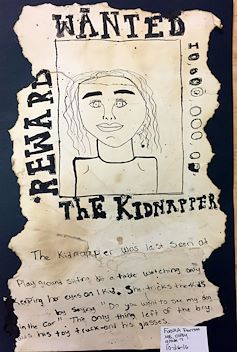 WANTED
REWARD
10,000,000.00
THE KIDNAPPER
The Kidnapper was last seen at
Playground sitting at a table watching only
keeping her eyes on 1 kid. She tricks the kids
by saying "Do you want to see my dog
in the car" The only thing left of the boy
was his toy truck and his glasses.